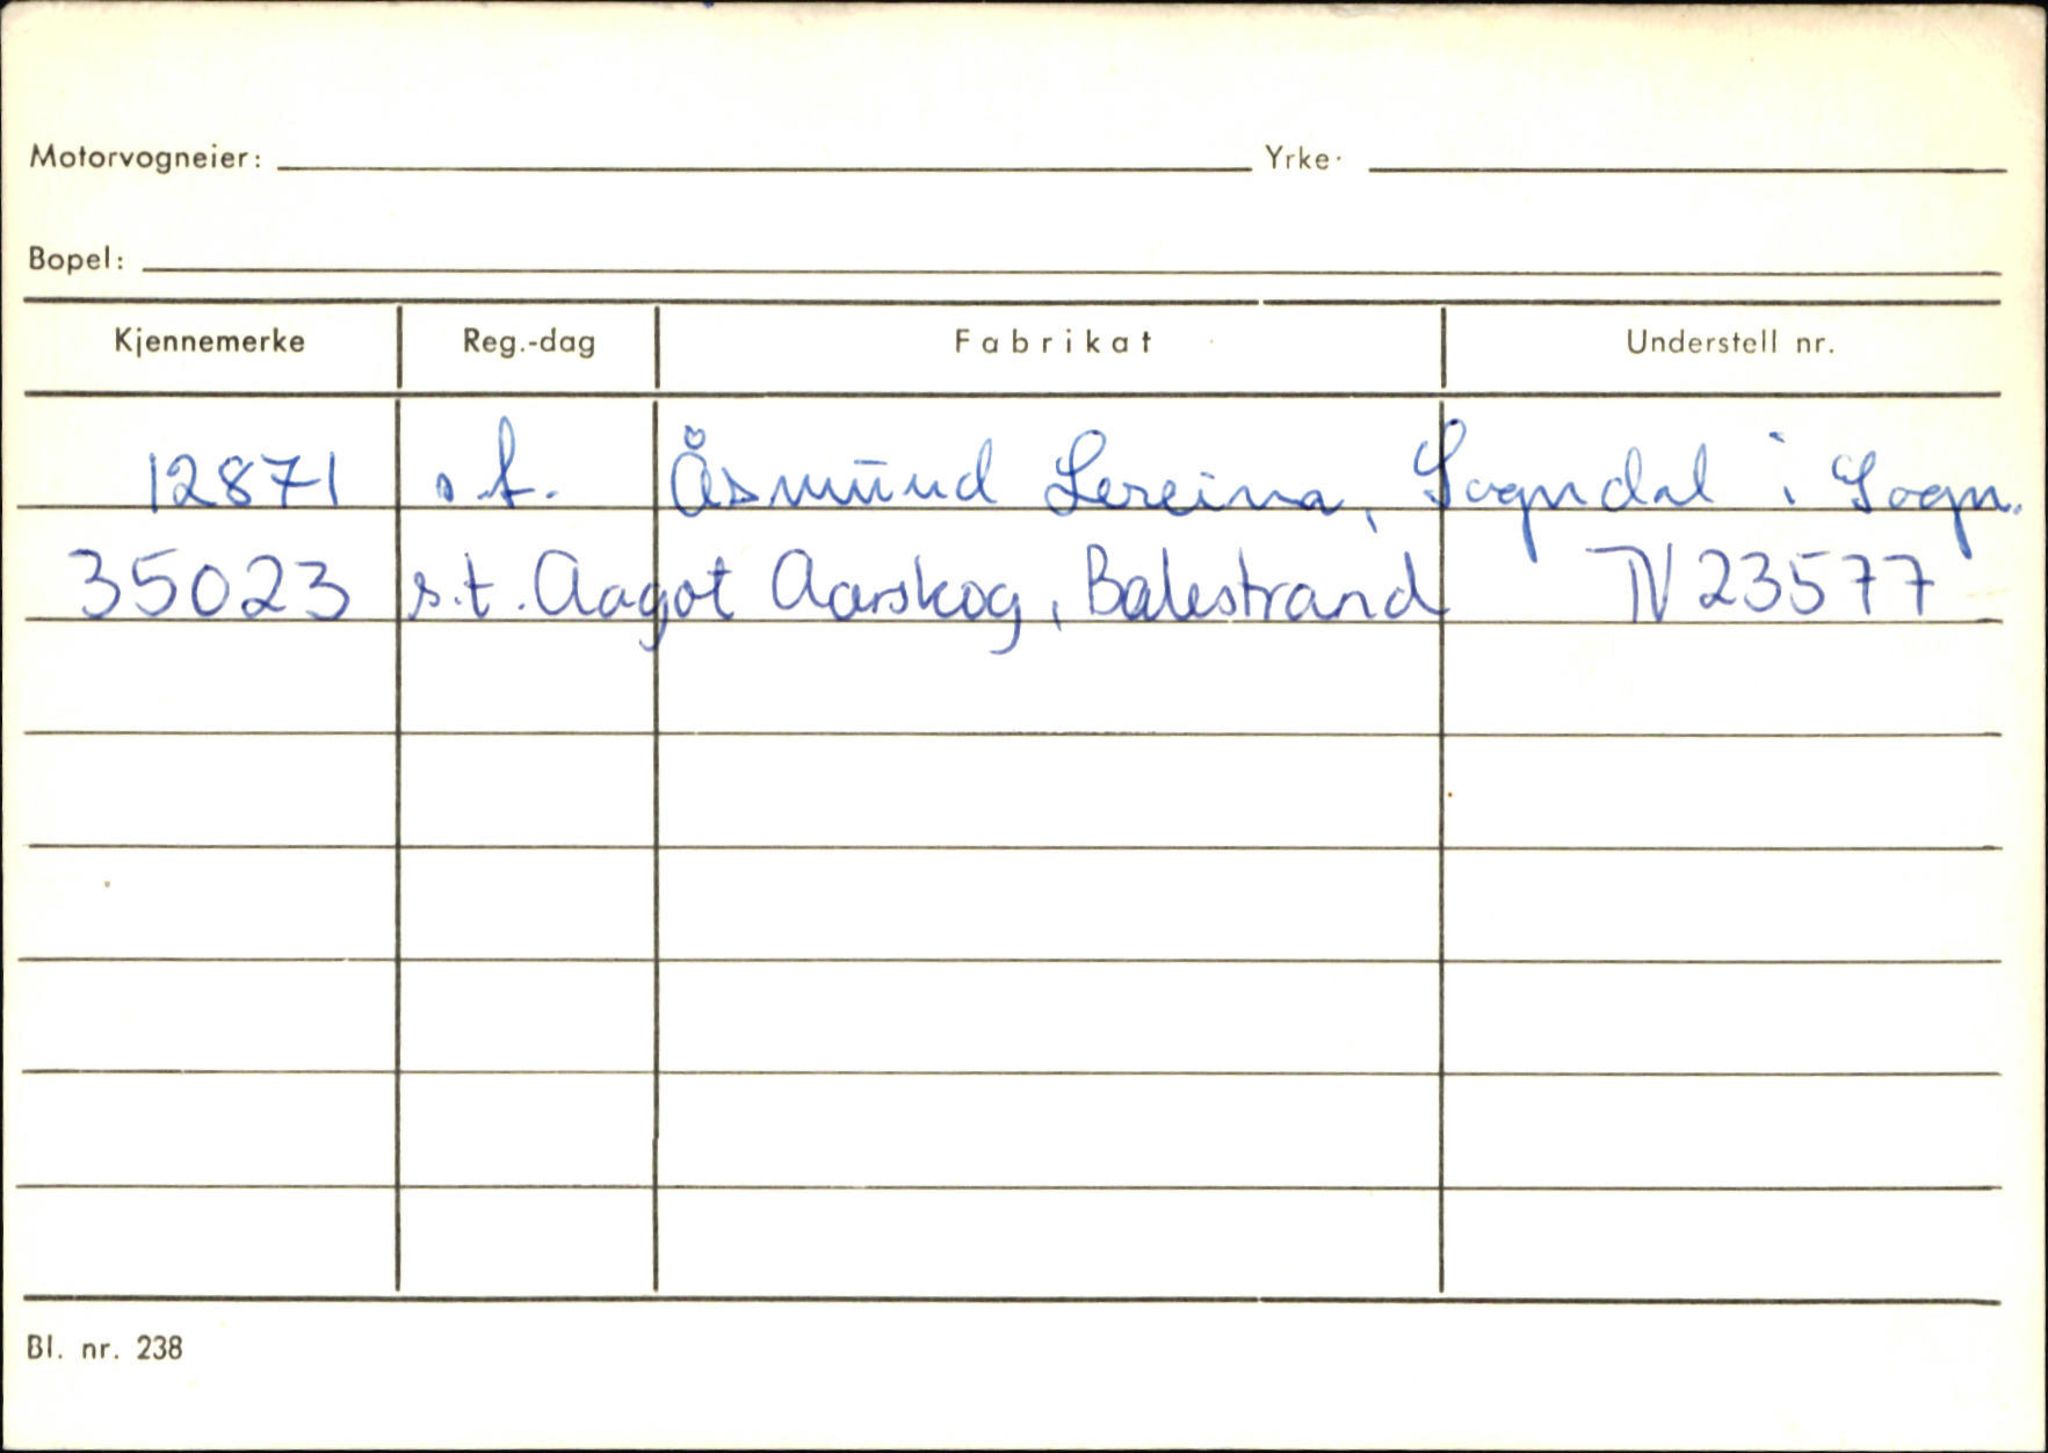 Motorvogneier: Yrke:
Bopel:
Kjennemerke Reg.-dag Fabrikat Understell nr.
12871 s.t. Åsmund Lereim, Sogndal i Sogn.
35023 s.t. Aagot Aarskog, Balestrand IV 23577
Bl. nr. 238